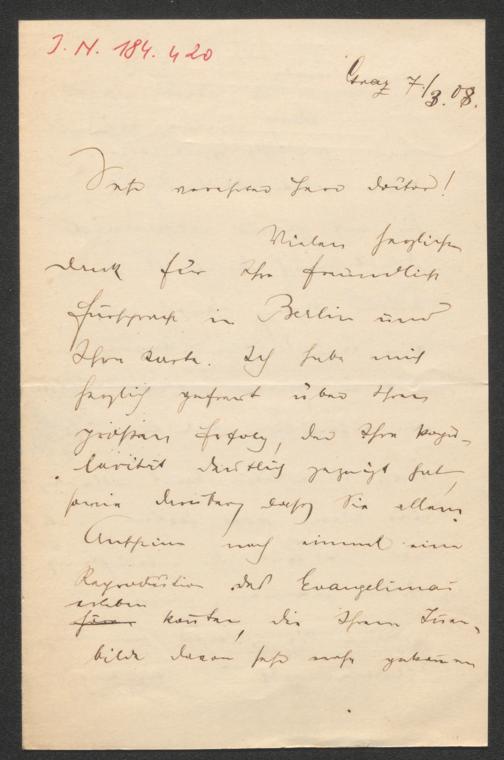 J. N. 184.420
Graz 7/3. 08.
Sehr verehrter Herr Doctor!
Vielen herzlichen
Dank für Ihre freundliche
Fürsprache in Berlin und
Ihre Karte. Ich habe mich
herzlich gefreut über Ihren
großen Erfolg, der Ihre Popu-
larität deutlich gezeigt hat,
sowie darüber, dass Sie allem
Anschein nach einmal eine
Reproduction des Evangelimann
erleben
konnten, die Ihrem
bilde davon sehr nahe gekommen